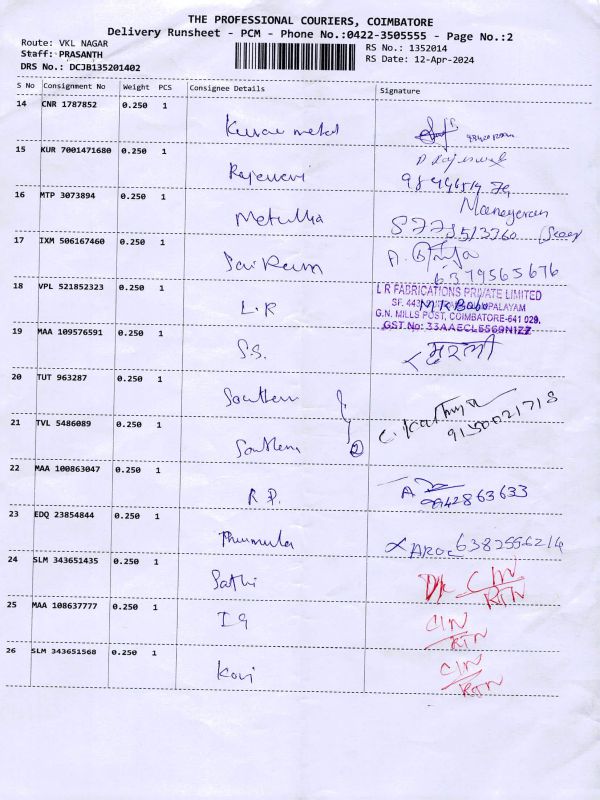 THE PROFESSIONAL COURIERS, COIMBATORE
Delivery Runsheet - PCM - Phone No.:0422-3505555 - Page No.:2
Route: VKL NAGAR
RS No.: 1352014
Staff: PRASANTH
RS Date: 12-Apr-2024
DRS No.: DCJB135201402
S No Consignment No Weight PCS Consignee Details Signature
14 CNR 1787852 0.250 1
15 KUR 7001471680 0.250 1
Rajeswari
16 MTP 3073894 0.250 1
Metullia
17 IXM 506167460 0.250 1
Sai Ram
6379565676
18 VPL 521852323 0.250 1
L.R
L R FABRICATIONS PRIVATE LIMITED
SF. 443
G.N. MILLS POST, COIMBATORE-641 029.
GST No: 33AAECL5569N1ZZ
M R Babu
19 MAA 109576591 0.250 1
S.S.
20 TUT 963287 0.250 1
Southern
21 TVL 5486089 0.250 1
Southern
2
C. Karthiya
9150021718
22 MAA 100863047 0.250 1
R.P.
9842863633
23 EDQ 23854844 0.250 1
6382556214
24 SLM 343651435 0.250 1
Sathi
D/L CIN
RTN
25 MAA 108637777 0.250 1
IQ
CIN
RTN
26 SLM 343651568 0.250 1
Kovi
CIN
RTN